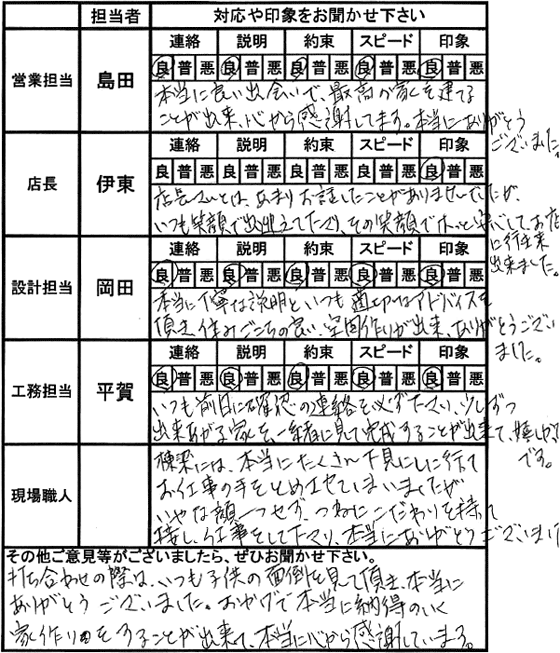 担当者 対応や印象をお聞かせ下さい
営業担当 島田
連絡 説明 約束 スピード 印象
良 普 悪 良 普 悪 良 普 悪 良 普 悪 良 普 悪
本当に良い出会いで、最高の家を建てる
ことが出来、心から感謝してます。本当にありがとう
ございました。
店長 伊東
連絡 説明 約束 スピード 印象
良 普 悪 良 普 悪 良 普 悪 良 普 悪 良 普 悪
店長さんとは、あまりお話したことがありませんでしたが、
いつも笑顔で出迎えて下さり、その笑顔でホッと安心して、お店
に行く事が
出来ました。
設計担当 岡田
連絡 説明 約束 スピード 印象
良 普 悪 良 普 悪 良 普 悪 良 普 悪 良 普 悪
本当に丁寧な説明といつも適切なアドバイスを
頂き、住みごこちの良い空間作りが出来、ありがとうござい
ました。
工務担当 平賀
連絡 説明 約束 スピード 印象
良 普 悪 良 普 悪 良 普 悪 良 普 悪 良 普 悪
いつも前日に確認の連絡を必ず下さい、少しずつ
出来あがる家を、一緒に見て完成することが出来て、嬉しかった
です。
現場職人
棟梁には、本当にたくさん下見にしに行って
お仕事の手をとめさせてしまいましたが
いやな顔一つせず、つねにこだわりを持って
接し、仕事をして下さり、本当にありがとうございました
その他ご意見等がございましたら、ぜひお聞かせ下さい。
打ち合わせの際は、いつも子供の面倒を見て頂き、本当に
ありがとうございました。おかげで本当に納得のいく
家作りをすることが出来て、本当に心から感謝しています。